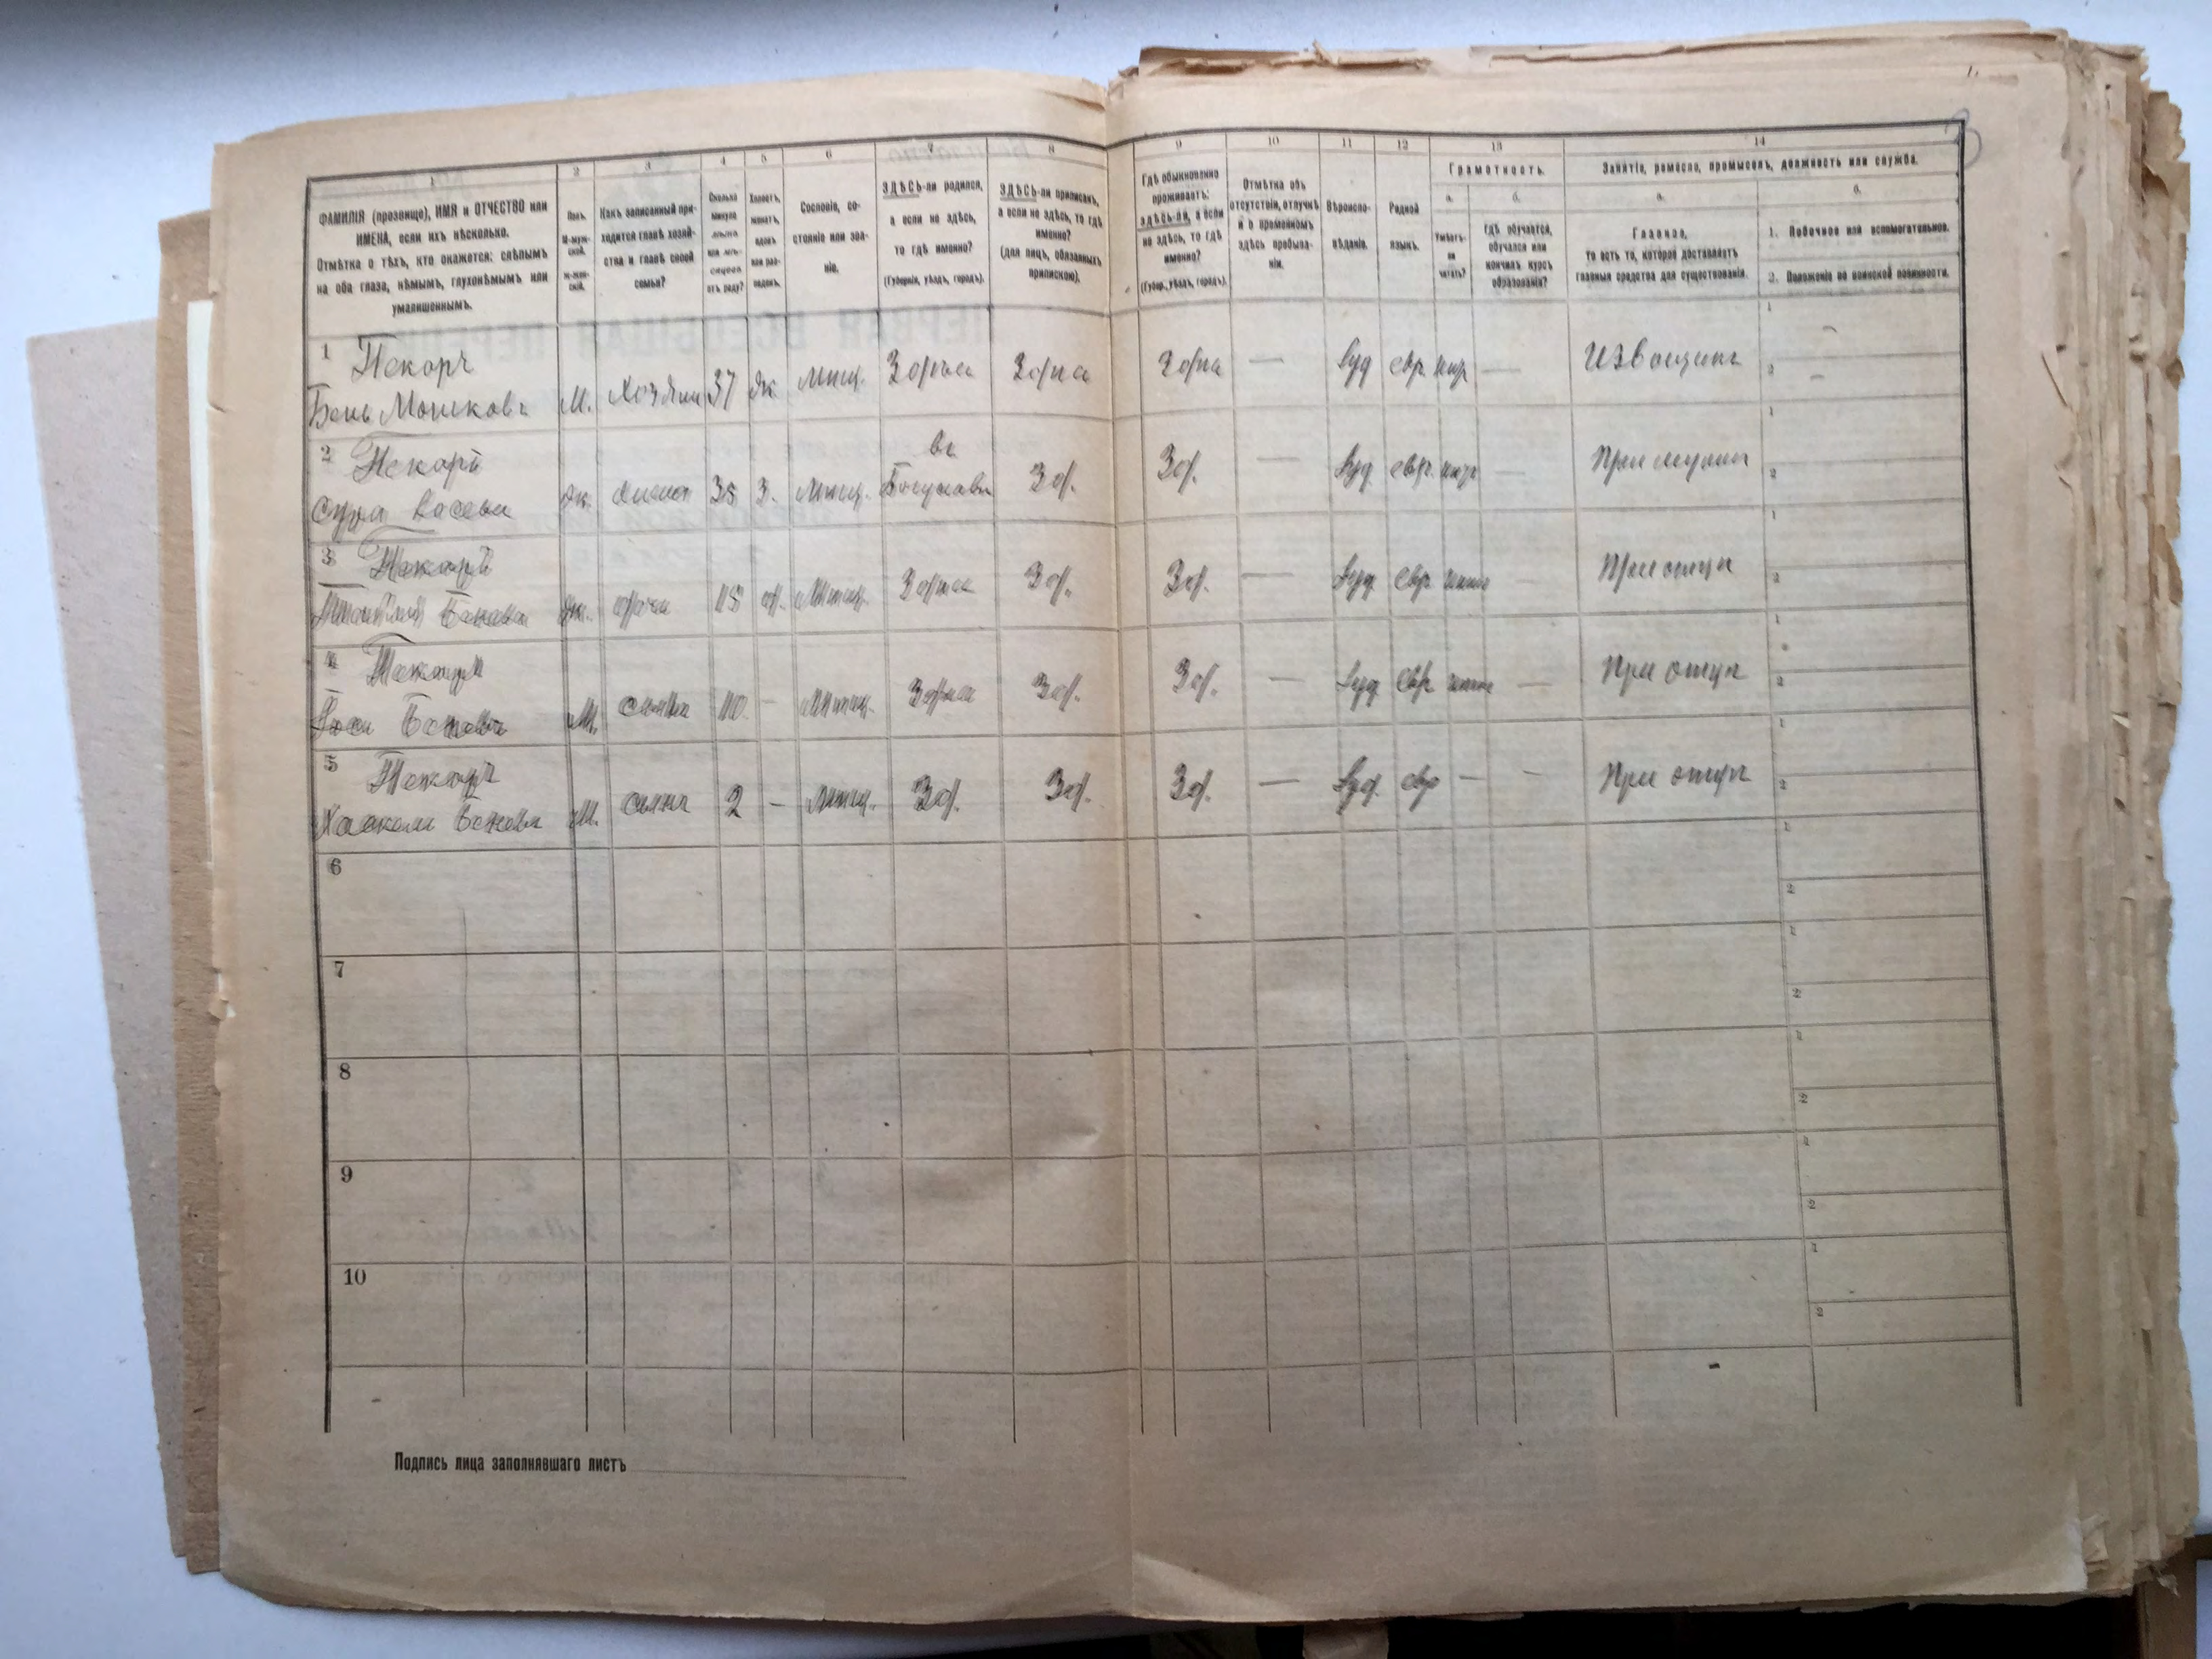 1 2 3 4 5 6 7 8 9 10 11 12 13 14
ФАМИЛІЯ (прозвище), ИМЯ и ОТЧЕСТВО или
ИМЕНА, если ихъ нѣсколько.
Отмѣтка о тѣхъ, кто окажется: слѣпымъ
на оба глаза, нѣмымъ, глухонѣмымъ или
умалишеннымъ.
Полъ.
М-муж-
ской.
Ж-жен-
скій.
Какъ записанный при-
ходится главѣ хозяй-
ства и главѣ своей
семьи?
Сколько
минуло
лѣтъ
или мѣ-
сяцевъ
отъ роду?
Холостъ,
женатъ,
вдовъ
или раз-
веденъ.
Сословіе, со-
стояніе или зва-
ніе.
ЗДѢСЬ-ли родился,
а если не здѣсь,
то гдѣ именно?
(Губернія, уѣздъ, городъ).
ЗДѢСЬ-ли приписанъ,
а если не здѣсь, то гдѣ
именно?
(для лицъ, обязанныхъ
припискою).
Гдѣ обыкновенно
проживаетъ:
ЗДѢСЬ-ЛИ, а если
не здѣсь, то гдѣ
именно?
(Губер., уѣздъ, городъ).
Отмѣтка объ
отсутствіи, отлучкѣ
и о временномъ
здѣсь пребыва-
ніи.
Вѣроиспо-
вѣданіе.
Родной
языкъ.
Грамотность.
а.
Умѣетъ-
ли
читать?
б.
гдѣ обучается,
обучался или
кончилъ курсъ
образованія?
Занятіе, ремесло, промыселъ, должность или служба.
а.
Главное,
то есть то, которое доставляетъ
главныя средства для существованія.
б.
1. Побочное или вспомогательное.
2. Положеніе по воинской повинности.
1 Пекарь
М. 37 Мѣщ. Здѣсь Здѣсь Здѣсь — Іуд евр. — Извощикъ
2 Пекарь
Сура ж. жена 35 З. Мѣщ. въ Богуславѣ Зд. Зд. — Іуд. евр. — При мужѣ
3 Пекарь
ж. дочь 15 д. Мѣщ. Здѣсь Зд. Зд. — Іуд. евр. При отцѣ
4 Пекарь
М. сынъ 10 — Мѣщ. Здѣсь Зд. Зд. — Іуд. евр. — При отцѣ
5 Пекарь
М. сынъ 2 — Мѣщ. Зд. Зд. Зд. — Іуд. евр — — При отцѣ
6
7
8
9
10
Подпись лица заполнявшаго листъ